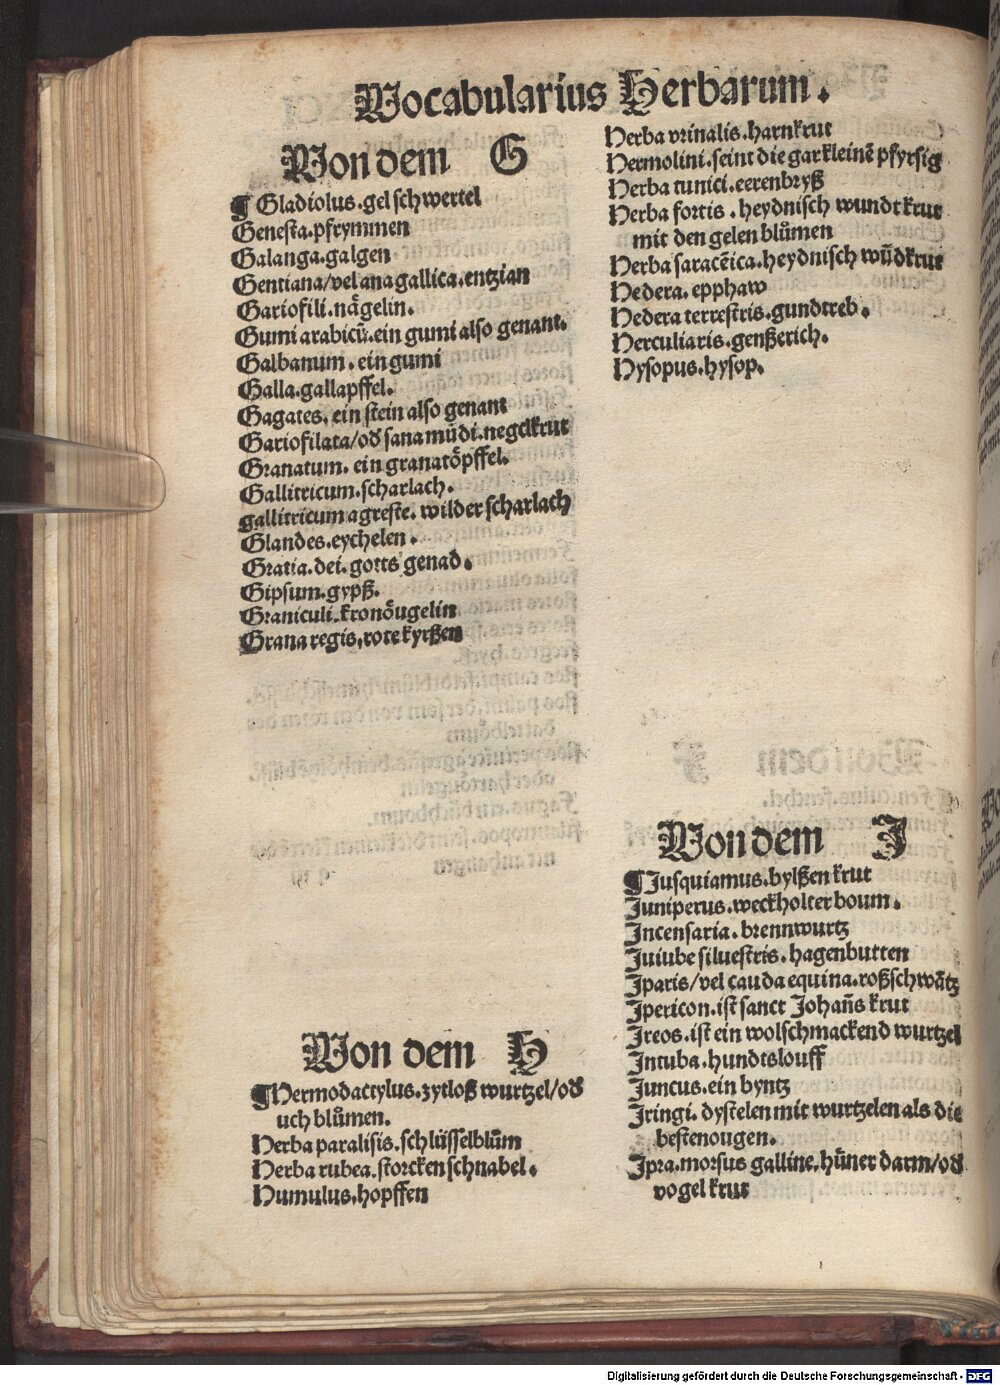 Vocabularius Herbarum.
Von dem G
¶ Gladiolus.gel schwertel
Genesta.pfrymmen
Galanga.galgen
Gentiana/vel ana gallica.entzian
Gariofili.någelin.
Gumi arabicū.ein gumi also genant.
Galbanum.ein gumi
Galla.gallapffel.
Gagates.ein stein also genant
Gariofilata/oď sana mūdi.negelkrut
Granatum.ein granatöpffel.
Gallitricum.scharlach.
gallitricum agreste.wilder scharlach
Glandes.eychelen.
Gratia.dei.gotts genad.
Gipsum.gypß.
Graniculi.kronöugelin
Grana regis.rote kyrßen
Von dem H
¶Hermodactylus.zytloß wurtzel/oď
uch blůmen.
Herba paralisis.schlüsselblům
Herba rubea.storcken schnabel.
Humulus.hopffen
Herba vrinalis.harnkrut
Hermolini.seint die gar kleinē pfyrsig
Herba tunici.eerenbryß
Herba fortis.heydnisch wundt krut
mit den gelen blůmen
Herba saracēica.heydnisch wūdkrut
Hedera.epphaw
Hedera terrestris.gundtreb.
Herculiaris.genßerich.
Hysopus.hysop.
Von dem J
¶Jusquiamus.bylßen krut
Juniperus.weckholter boum.
Incensaria.brennwurtz
Juiube siluestris.hagenbutten
Jparis/vel cauda equina.roßschwåtz
Jpericon.ist sanct Johañs krut
Jreos.ist ein wolschmackend wurtzel
Intuba.hundtslouff
Juncus.ein byntz
Jringi.dystelen mit wurtzelen als die
bestenougen.
Jpra.morsus galline.hůner darm/oď
vogel krut
Digitalisierung gefördert durch die Deutsche Forschungsgemeinschaft - DFG